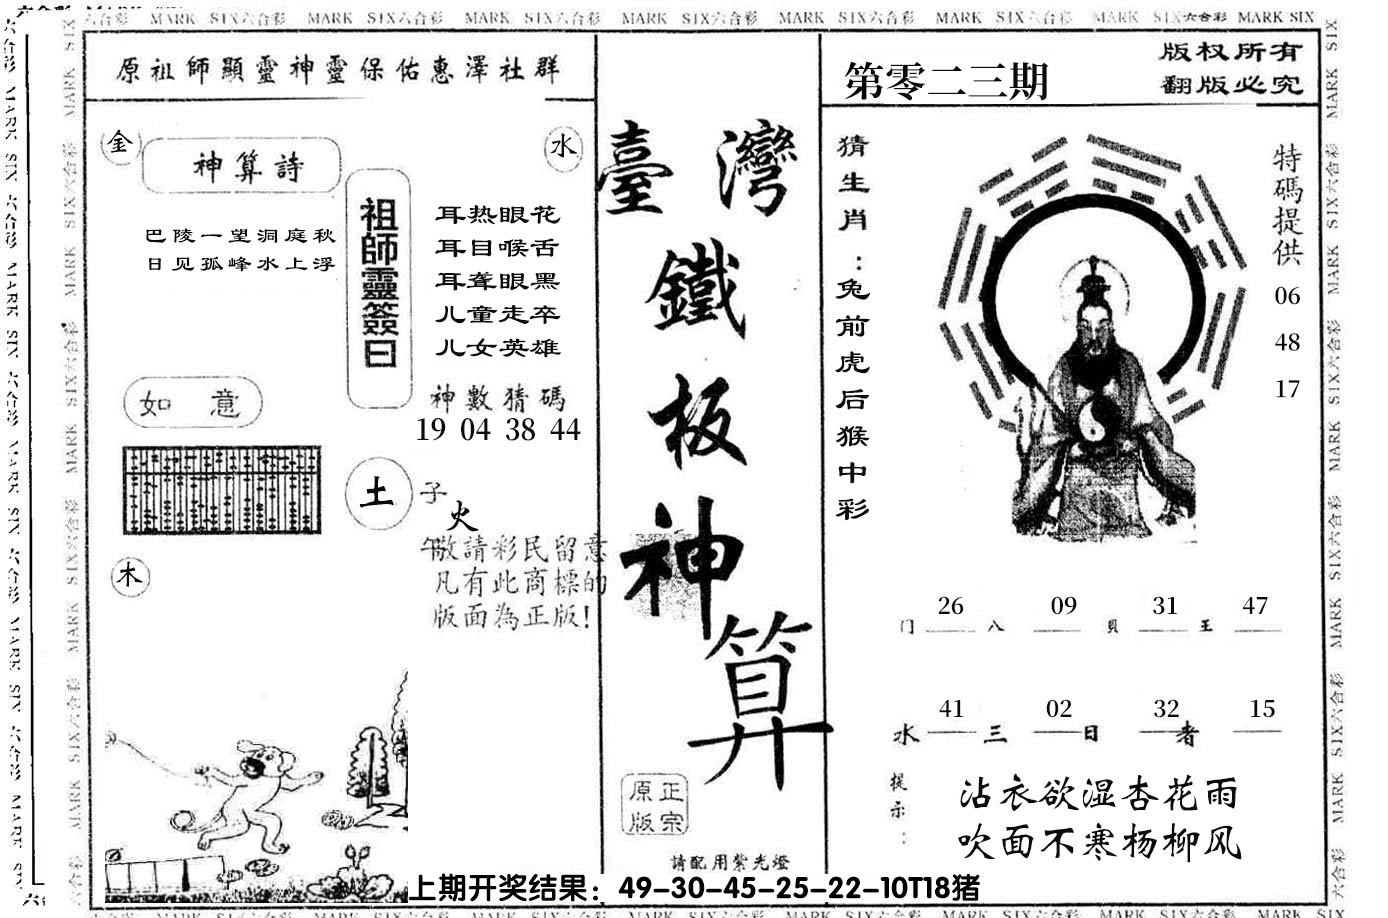 六合彩 MARK SIX六合彩 MARK SIX六合彩 MARK SIX六合彩 MARK SIX六合彩 MARK SIX六合彩 MARK SIX六合彩 MARK SIX六合彩 MARK SIX
原祖師顯靈神靈保佑惠澤社群
金
神算詩
巴陵一望洞庭秋
日见孤峰水上浮
水
祖師靈簽曰
耳热眼花
耳目喉舌
耳聋眼黑
儿童走卒
儿女英雄
神數猜碼
19 04 38 44
如意
土
子
火
午
木
敬請彩民留意
凡有此商標的
版面為正版!
臺灣
鐵
板
神
算
正宗
原版
請配用紫光燈
第零二三期
版权所有
翻版必究
猜生肖:兔前虎后猴中彩
特碼提供
06
48
17
26 09 31 47
门 八 贝 王
41 02 32 15
水 三 日 者
提示:
沾衣欲湿杏花雨
吹面不寒杨柳风
上期开奖结果：49-30-45-25-22-10T18猪